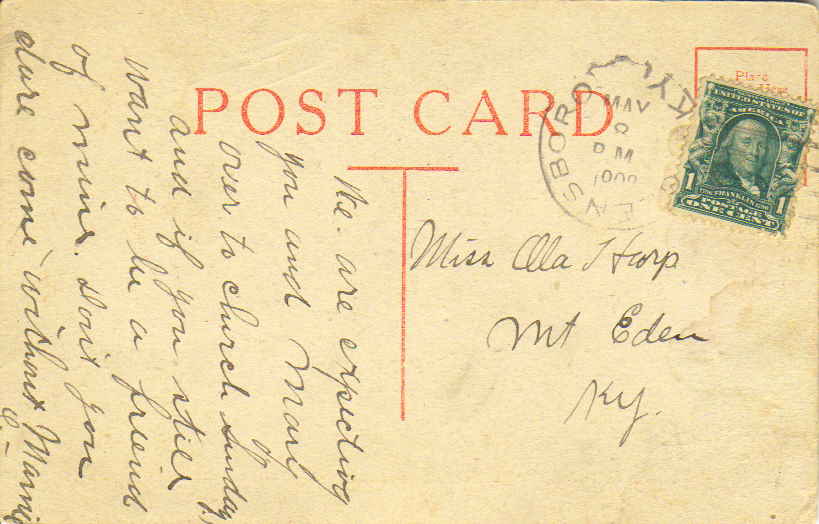 POST CARD
Place
Here
ENSBORO
KY
MAY
PM
UNITED STATES OF
AMERICA
1 1
FRANKLIN
POSTAGE
ONE CENT
We are expecting
you and Mary
over to church Sunday
and if you still
want to be a friend
of mine. Don't you
dare come without Mamie
Miss Ola Harp
Mt Eden
Ky.